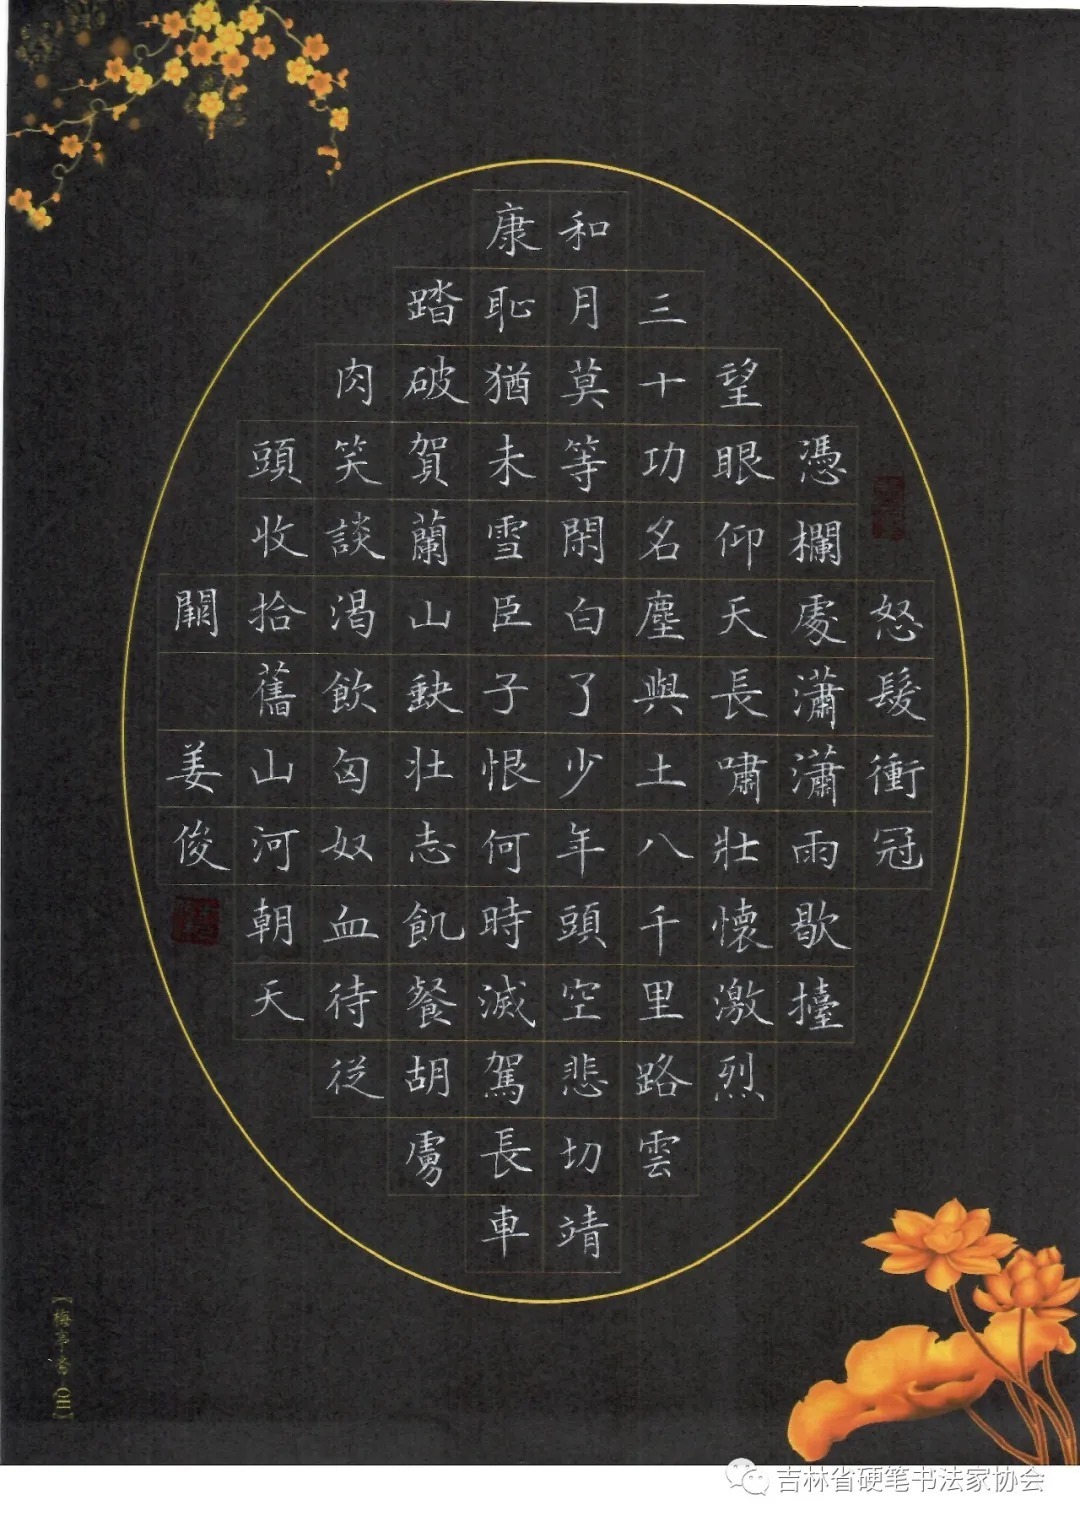 怒髮衝冠
憑欄處瀟瀟雨歇擡
望眼仰天長嘯壯懷激烈
三十功名塵與土八千里路雲
和月莫等閑白了少年頭空悲切靖
康恥猶未雪臣子恨何時滅駕長車
踏破賀蘭山缺壯志飢餐胡虜
肉笑談渴飲匈奴血待從
頭收拾舊山河朝天
闕 姜俊
吉林省硬笔书法家协会